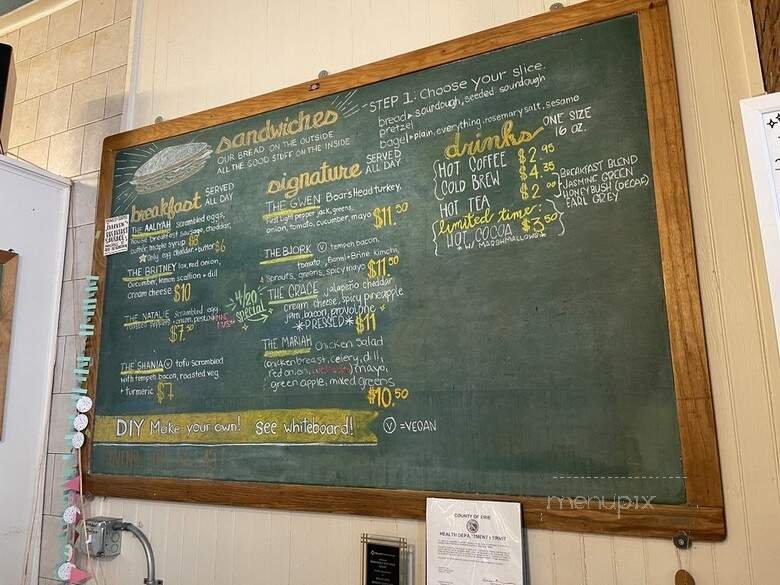 sandwiches
OUR BREAD ON THE OUTSIDE
ALL THE GOOD STUFF ON THE INSIDE
breakfast SERVED ALL DAY
THE AALIYAH scrambled eggs,
house breakfast sausage, cheddar,
butter, maple syrup $8
Only egg, cheddar + butter $6
THE BRITNEY lox, red onion,
cucumber, lemon scallion + dill
cream cheese $10
THE NATALIE scrambled egg
roasted peppers + onion, pesto
$7.50
THE SHANIA Ⓥ tofu scrambled
with tempeh bacon, roasted veg
+ turmeric $7
4/20
special
signature SERVED ALL DAY
THE GWEN Boar's Head turkey,
pepper jack, greens,
onion, tomato, cucumber, mayo $11.50
THE BJORK Ⓥ tempeh bacon,
tomato, Barrel + Brine Kimchi,
sprouts, greens, spicy mayo $11.50
THE GRACE jalapeño cheddar
cream cheese, spicy pineapple
jam, bacon, provolone
*PRESSED* $11
THE MARIAH chicken salad
(chicken breast, celery, dill,
red onion, mayo,
green apple, mixed greens
$10.50
STEP 1: Choose your slice.
bread sourdough, seeded sourdough
pretzel
bagel plain, everything, rosemary salt, sesame
drinks ONE SIZE
16 OZ.
HOT COFFEE $2.95
COLD BREW $4.35
HOT TEA $2.00
BREAKFAST BLEND
JASMINE GREEN
HONEYBUSH (DECAF)
EARL GREY
limited time:
HOT COCOA $3.50
w/ MARSHMALLOWS
DIY Make your own! see whiteboard!
Ⓥ = VEGAN
menupix
COUNTY OF ERIE
HEALTH DEPARTMENT PERMIT